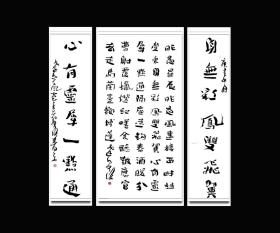 身無彩鳳雙飛翼
昨夜星辰昨夜風畫樓西畔桂
堂東身無彩鳳雙飛翼心有靈
犀一點通隔座送鉤春酒暖分
曹射覆蠟燈紅嗟余聽鼓應官
去走馬蘭臺類轉蓬
心有靈犀一點通